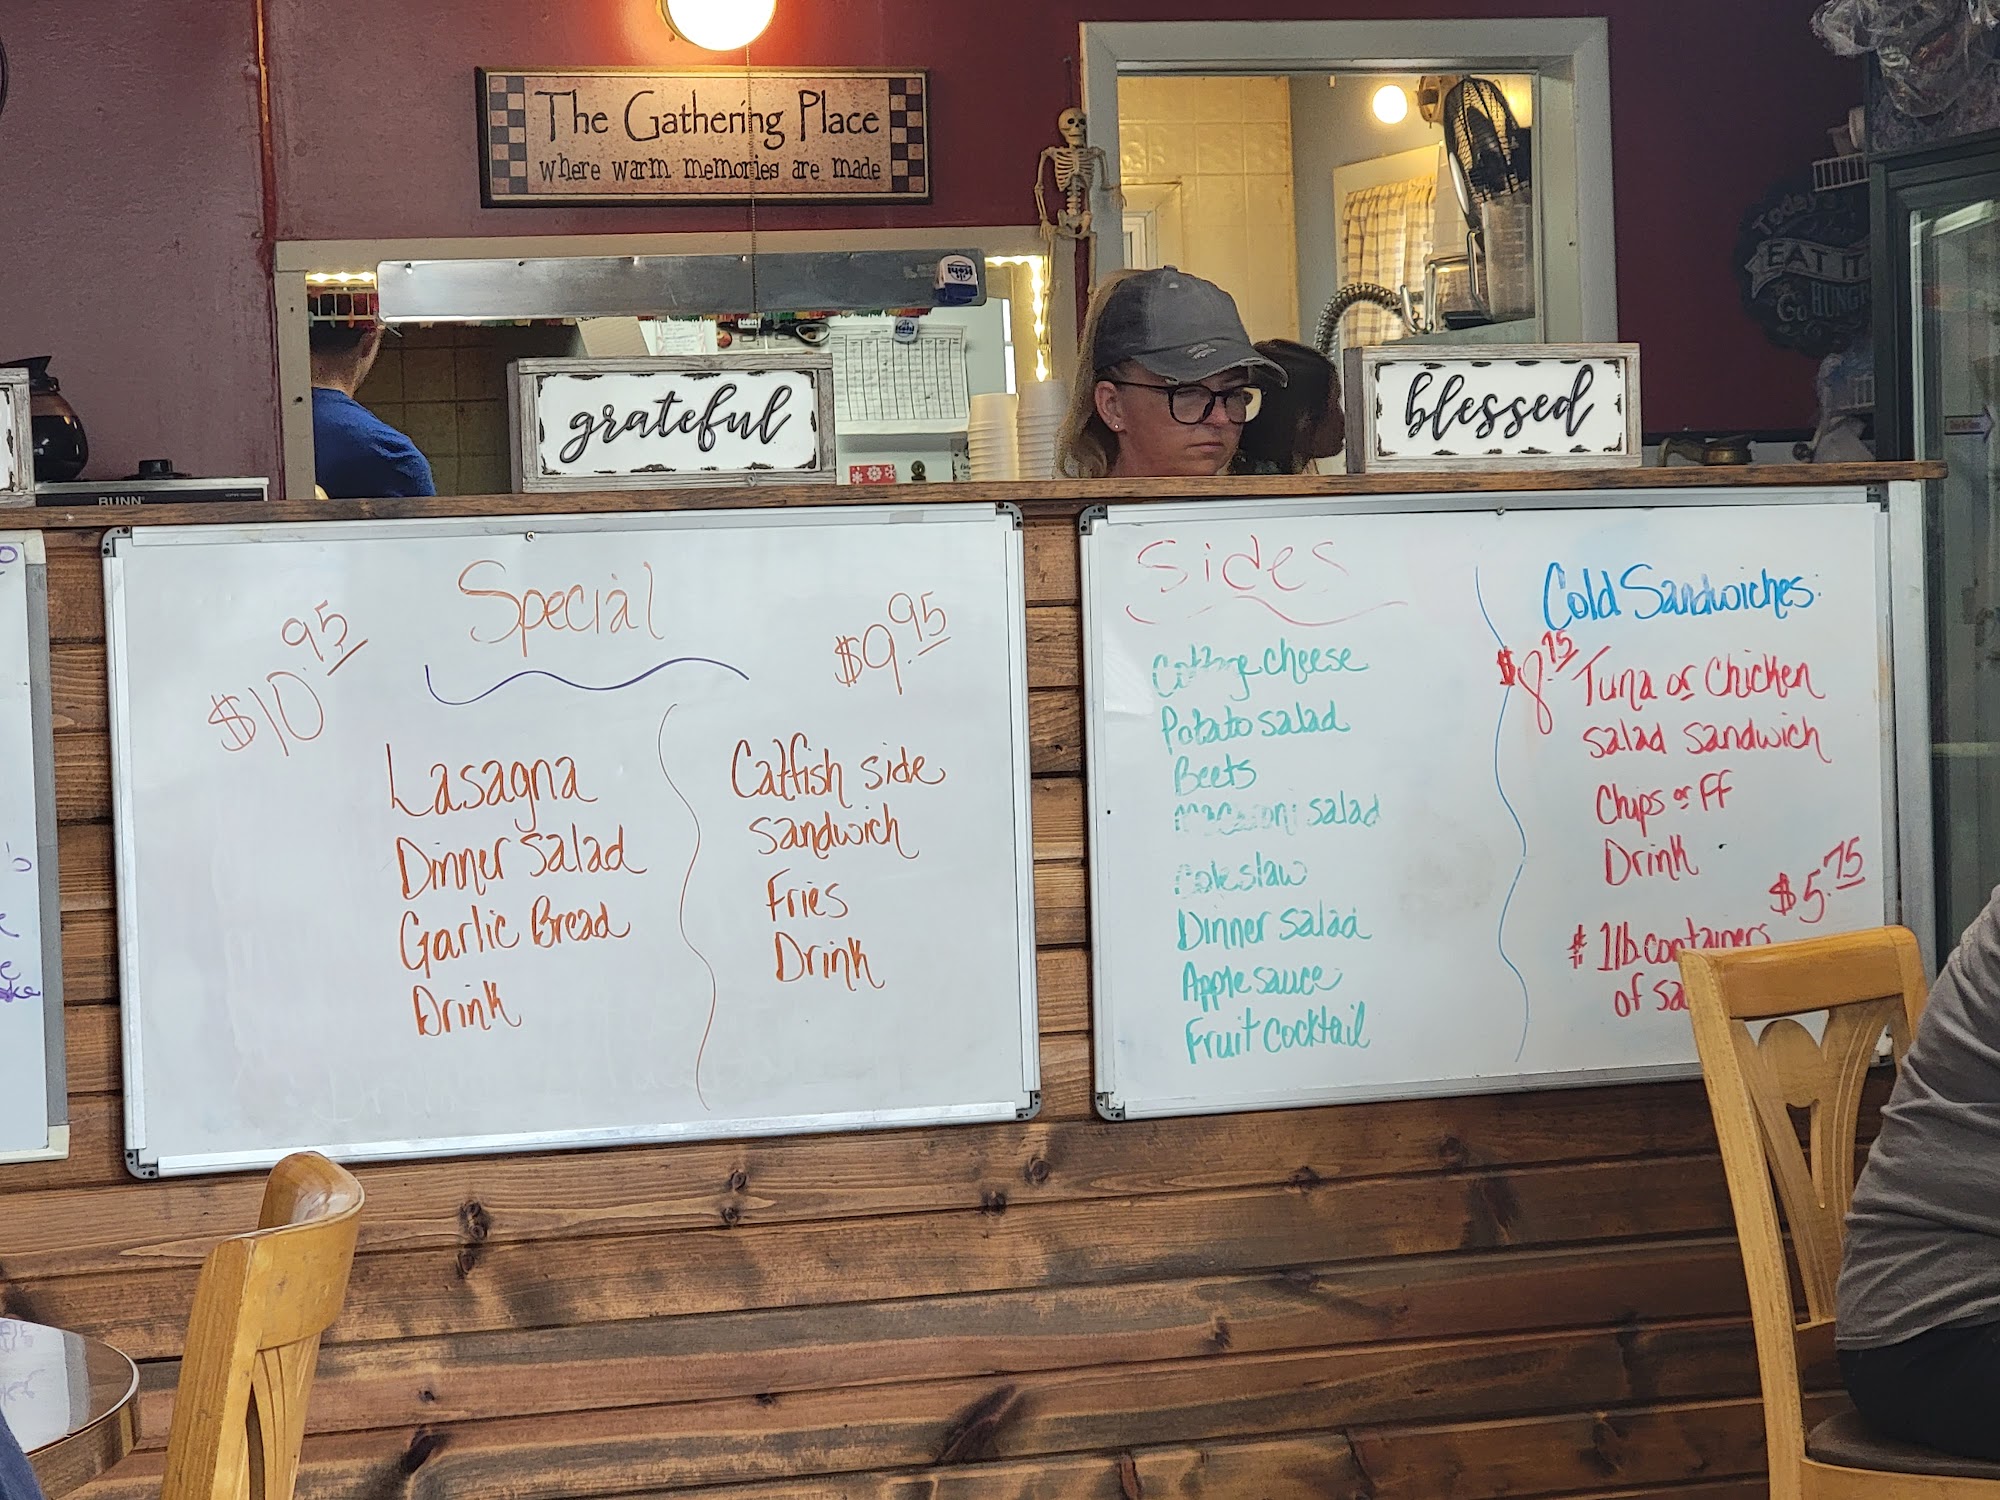 The Gathering Place
where warm memories are made
Today's
EAT IT
Go HUNGRY
grateful
blessed
BUNN
Special
$10.95
$9.95
Lasagna
Dinner Salad
Garlic Bread
Drink
Catfish side
sandwich
Fries
Drink
Sides
Cottage cheese
Potato salad
Beets
macaroni salad
Coleslaw
Dinner salad
Apple sauce
Fruit cocktail
Cold Sandwiches:
$8.75
Tuna or Chicken
salad sandwich
Chips or FF
Drink
$5.75
1lb containers
of